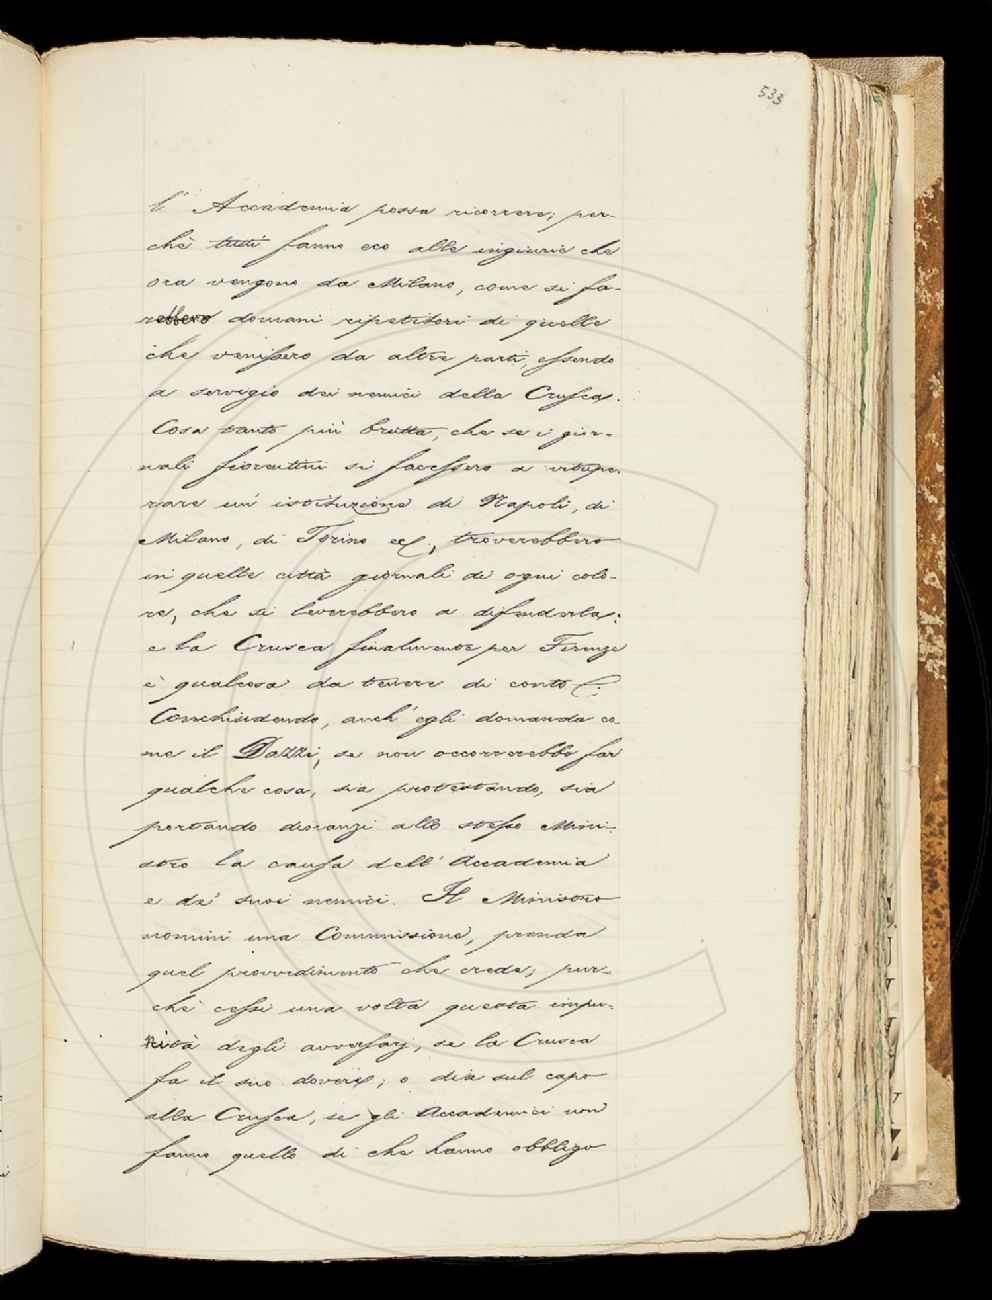 533
l'Accademia possa ricorrere; per-
chè tutti fanno eco alle ingiurie che
ora vengono da Milano, come si fa-
rebbero domani ripetitori di quelle
che venissero da altre parti, essendo
a servigio dei nemici della Crusca.
Cosa tanto più brutta, che se i gior-
nali fiorentini si facessero a vitupe-
rare un'istituzione di Napoli, di
Milano, di Torino ecc., troverebbero
in quelle città giornali di ogni colo-
re, che si leverebbero a difenderla;
e la Crusca finalmente per Firenze
è qualcosa da tenere di conto.
Conchiudendo, anch'egli domanda co
me il Dazzi, se non occorrerebbe far
qualche cosa, sia protestando, sia
portando dinanzi allo stesso Mini-
stro la causa dell'Accademia
e de' suoi nemici. Il Ministro
nomini una Commissione, prenda
quel provvedimento che crede; pur-
chè cessi una volta questa impu-
nità degli avversarj, se la Crusca
fa il suo dovere; o dia sul capo
alla Crusca, se gli Accademici non
fanno quello di che hanno obbligo